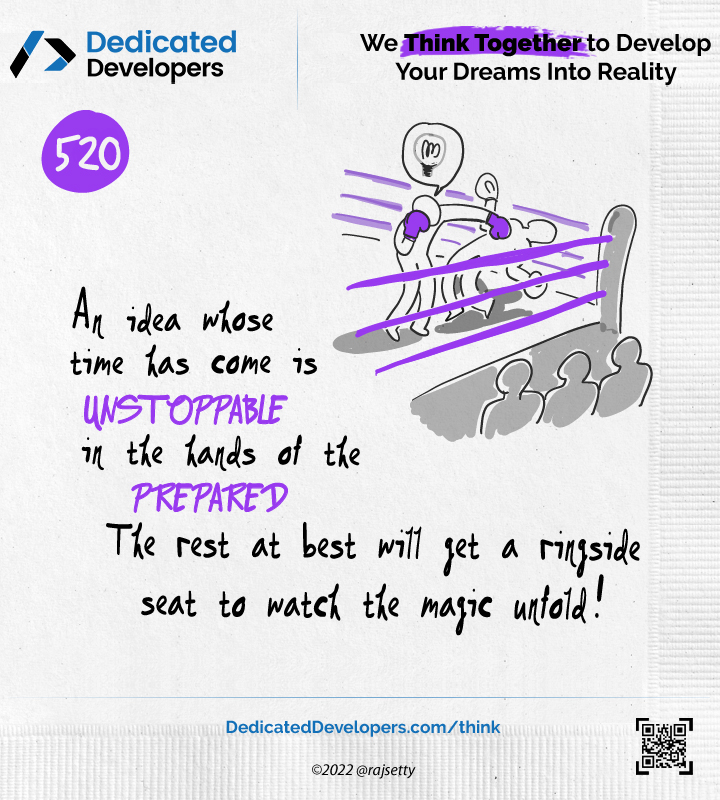 Dedicated
Developers
We Think Together to Develop
Your Dreams Into Reality
520
An idea whose
time has come is
UNSTOPPABLE
in the hands of the
PREPARED
The rest at best will get a ringside
seat to watch the magic unfold!
DedicatedDevelopers.com/think
©2022 @rajsetty